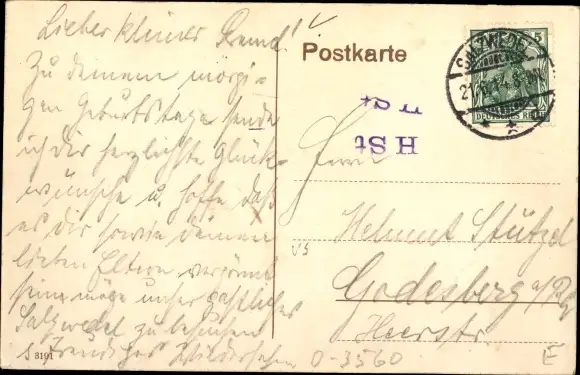 Lieber kleiner Freund!
Zu deinem morgi-
gen Geburtstage sende
ich dir herzlichste Glück-
wünsche u. hoffe daß
es dir sowie deinen
lieben Eltern vergönnt
sein möge unser gastliches
Salzwedel zu besuchen
Freudiges Wiedersehen
3191
Postkarte
SALZWEDEL
5
DEUTSCHES REICH
H St
Herrn
Helmut Stützel
VS
Godesberg a/Rh
Heerstr.
0-3560
E